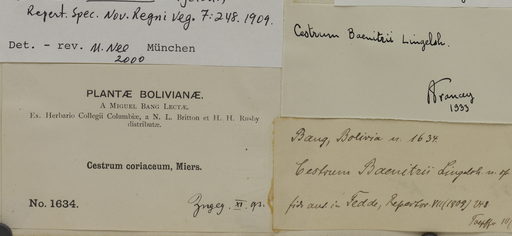 Repert. Spec. Nov. Regni Veg. 7: 248. 1909.
Det. - rev. M. Neo München
2000
PLANTÆ BOLIVIANÆ.
A MIGUEL BANG LECTÆ.
Ex. Herbario Collegii Columbiæ, a N. L. Britton et H. H. Rusby
distributæ.
Cestrum coriaceum, Miers.
No. 1634.
Cestrum Baenitzii Lingelsh.
Francey
1933
Bang, Bolivia n. 1634
Cestrum Baenitzii Lingelsh n. sp
in Fedde, Repertor VII (1909) 248